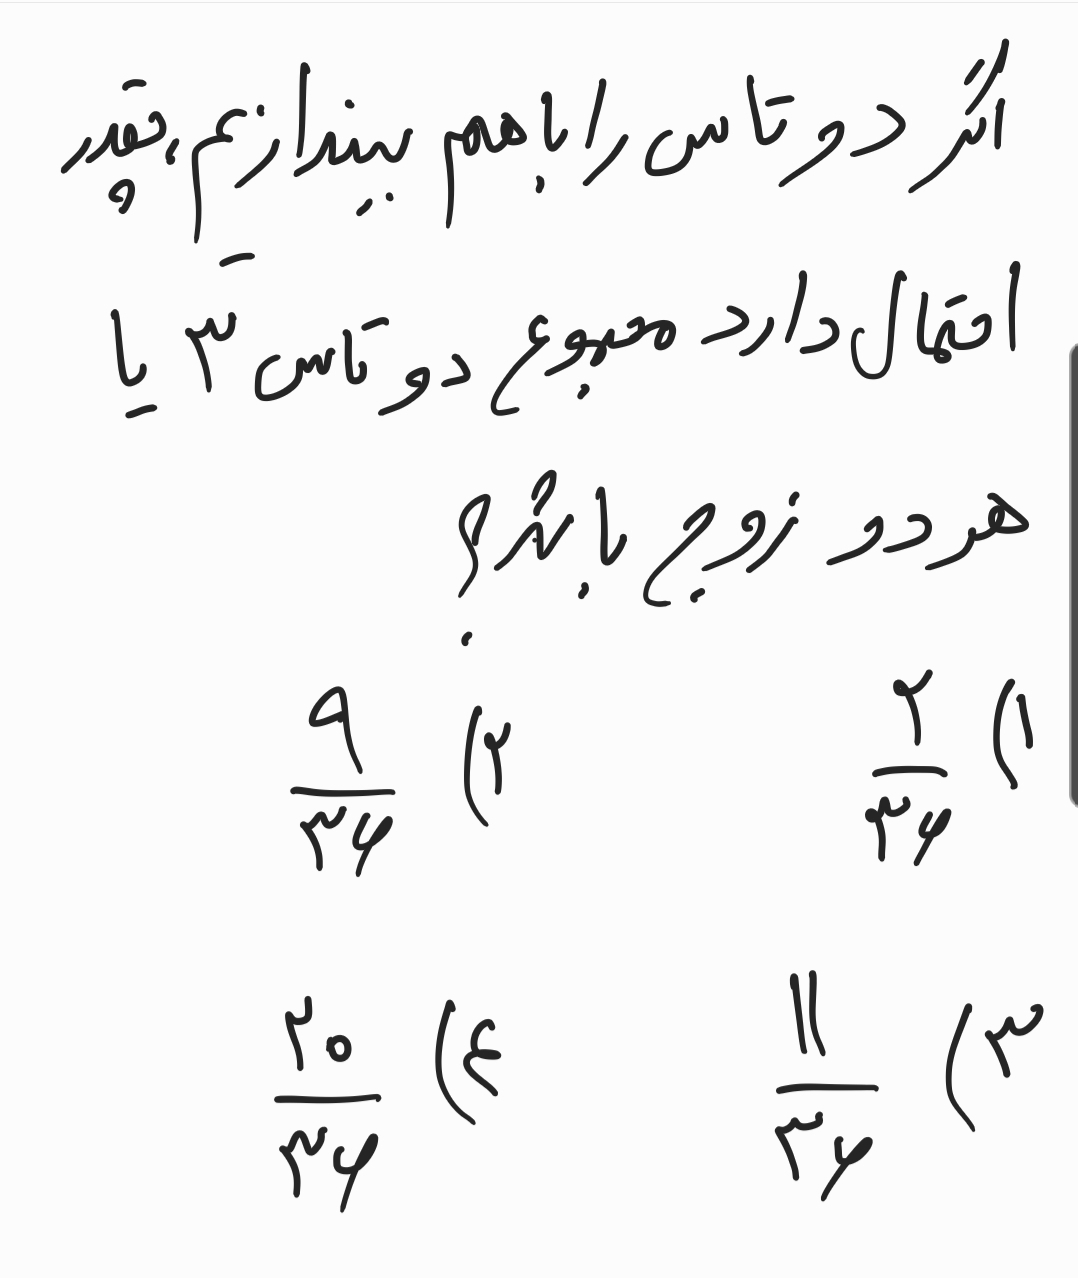 اگر دو تاس را با هم بیندازیم، چقدر
احتمال دارد مجموع دو تاس ۳ یا
هر دو زوج باشد؟
۱) ۲/۳۶
۲) ۹/۳۶
۳) ۱۱/۳۶
۴) ۲۰/۳۶